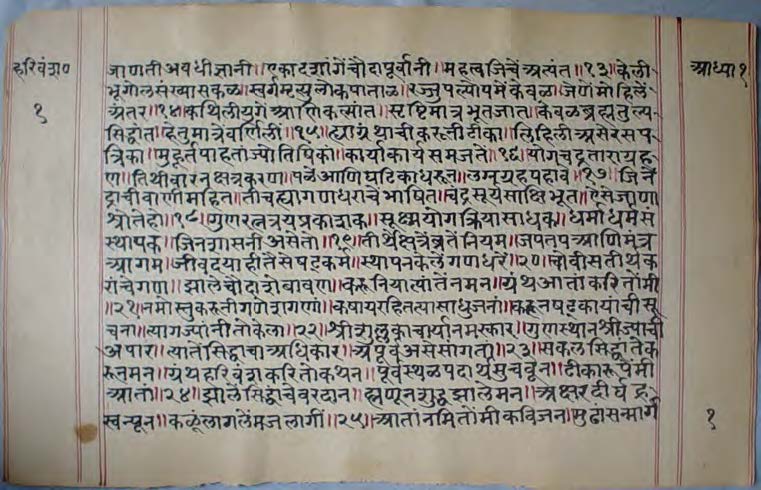 हरिवंशण
१
आध्या १
जाणती अवधी ज्ञानी॥ एकादशांगें चौदा पूर्वानी॥ महत्व जिचें अत्यंत॥१३॥ केली
भूगोल संख्या सकळ॥ स्वर्ग मृत्यु लोक पाताळ॥ रज्जु पल्योपमें केवळ॥ जेणें मोहिलें
अंतर॥१४॥ कथिली युगें आणि कल्पांत॥ सृष्टि मात्र भूतजात॥ केवळ ब्रह्म तुल्य
सिद्धांत॥ हेतु मात्रें वर्णिली॥१५॥ त्या ग्रंथाची करुनी टीका॥ लिहिली असे रस प
त्रिका॥ मुहूर्त पाहतां ज्योतिषिकां॥ कार्याकार्य समजतें॥१६॥ योग चंद्र तारा ग्रह
ण॥ तिथी वार नक्षत्र करण॥ पळें आणि घटिका धरून॥ लग्न ग्रह पहावे॥१७॥ जिनें
द्राची वाणी महित॥ तीच ह्या गणधराचें भाषित॥ चंद्र सूर्य साक्षिभूत॥ ऐसें जाणा
श्रोते हो॥१८॥ गुणरत्नत्रय प्रकाशक॥ सूक्ष्म योग क्रिया साधक॥ धर्माधर्म सं
स्थापक॥ जिनशासनी असे तो॥१९॥ तीर्थ क्षेत्रें व्रतें नियम॥ जप तप आणि मंत्र
आगम॥ जीवदया ही तें सषट्कर्म॥ स्थापन केलें गणधरें॥२०॥ चोवीस तीर्थंक
रांचे गण॥ झाले चौदाशे बावण॥ करुनिया त्यांतें नमन॥ ग्रंथ आतां करितों मी
॥२१॥ नमोस्तु करु ती गणेश गणां॥ कषाय रहित त्या साधु जनां॥ करून षट्कायांची सू
चना॥ त्याग ज्यांनी तो केला॥२२॥ श्री शुल्लुकाचार्या नमस्कार॥ गुणस्थान श्री ज्यांची
अपार॥ त्यातें सिद्धांचा अधिकार॥ अपूर्व असे सांगतां॥२३॥ सकल सिद्धांतें क
रून नमन॥ ग्रंथ हरिवंश करितों कथन॥ पूर्वस्थळ पदार्थ सुचवून॥ टीकारूपें मी
आतां॥२४॥ झालें सिद्धाचें वरदान॥ ह्मणून शुद्ध झालें मन॥ अक्षर दीर्घ ह्र
स्व न्यून॥ कळूं लागलें मज लागीं॥२५॥ आतां नमितों मी कविजन॥ मुढां सन्मार्ग
१